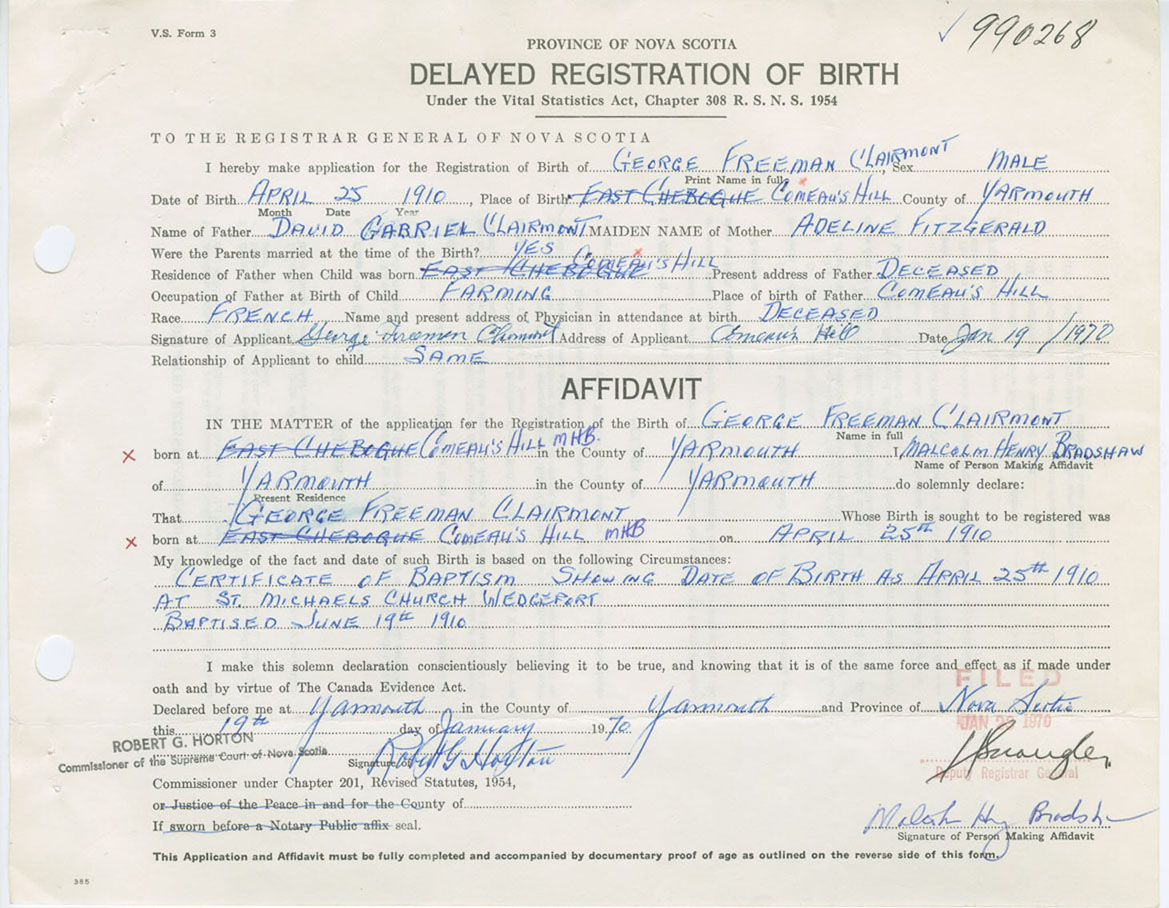 V.S. Form 3
990268
PROVINCE OF NOVA SCOTIA
DELAYED REGISTRATION OF BIRTH
Under the Vital Statistics Act, Chapter 308 R. S. N. S. 1954
TO THE REGISTRAR GENERAL OF NOVA SCOTIA
I hereby make application for the Registration of Birth of GEORGE FREEMAN CLAIRMONT, Sex MALE
Print Name in full
Date of Birth APRIL 25 1910, Place of Birth EAST CHEBOGUE COMEAU'S HILL County of YARMOUTH
Month Date Year
Name of Father DAVID GABRIEL CLAIRMONT MAIDEN NAME of Mother ADELINE FITZGERALD
Were the Parents married at the time of the Birth? YES
Residence of Father when Child was born EAST CHEBOGUE COMEAU'S HILL Present address of Father DECEASED
Occupation of Father at Birth of Child FARMING Place of birth of Father COMEAU'S HILL
Race FRENCH Name and present address of Physician in attendance at birth DECEASED
Signature of Applicant George Freeman Clairmont Address of Applicant Comeau's Hill Date Jan 19 / 1970
Relationship of Applicant to child SAME
AFFIDAVIT
IN THE MATTER of the application for the Registration of the Birth of GEORGE FREEMAN CLAIRMONT
Name in full
x born at EAST CHEBOGUE COMEAU'S HILL MHB. in the County of YARMOUTH I, MALCOLM HENRY BRADSHAW
Name of Person Making Affidavit
of YARMOUTH in the County of YARMOUTH do solemnly declare:
Present Residence
That GEORGE FREEMAN CLAIRMONT Whose Birth is sought to be registered was
x born at EAST CHEBOGUE COMEAU'S HILL MHB on APRIL 25TH 1910
My knowledge of the fact and date of such Birth is based on the following Circumstances:
CERTIFICATE OF BAPTISM SHOWING DATE OF BIRTH AS APRIL 25TH 1910
AT ST. MICHAELS CHURCH WEDGEPORT
BAPTISED JUNE 19TH 1910
I make this solemn declaration conscientiously believing it to be true, and knowing that it is of the same force and effect as if made under
oath and by virtue of The Canada Evidence Act.
FILED
Declared before me at Yarmouth in the County of Yarmouth and Province of Nova Scotia
this 19th day of January 1970
JAN 1970
ROBERT G. HORTON
Commissioner of the Supreme Court of Nova Scotia
Signature of Robert G Horton
Deputy Registrar General
Commissioner under Chapter 201, Revised Statutes, 1954,
or Justice of the Peace in and for the County of
If sworn before a Notary Public affix seal.
Malcolm Hy Bradshaw
Signature of Person Making Affidavit
This Application and Affidavit must be fully completed and accompanied by documentary proof of age as outlined on the reverse side of this form.
385